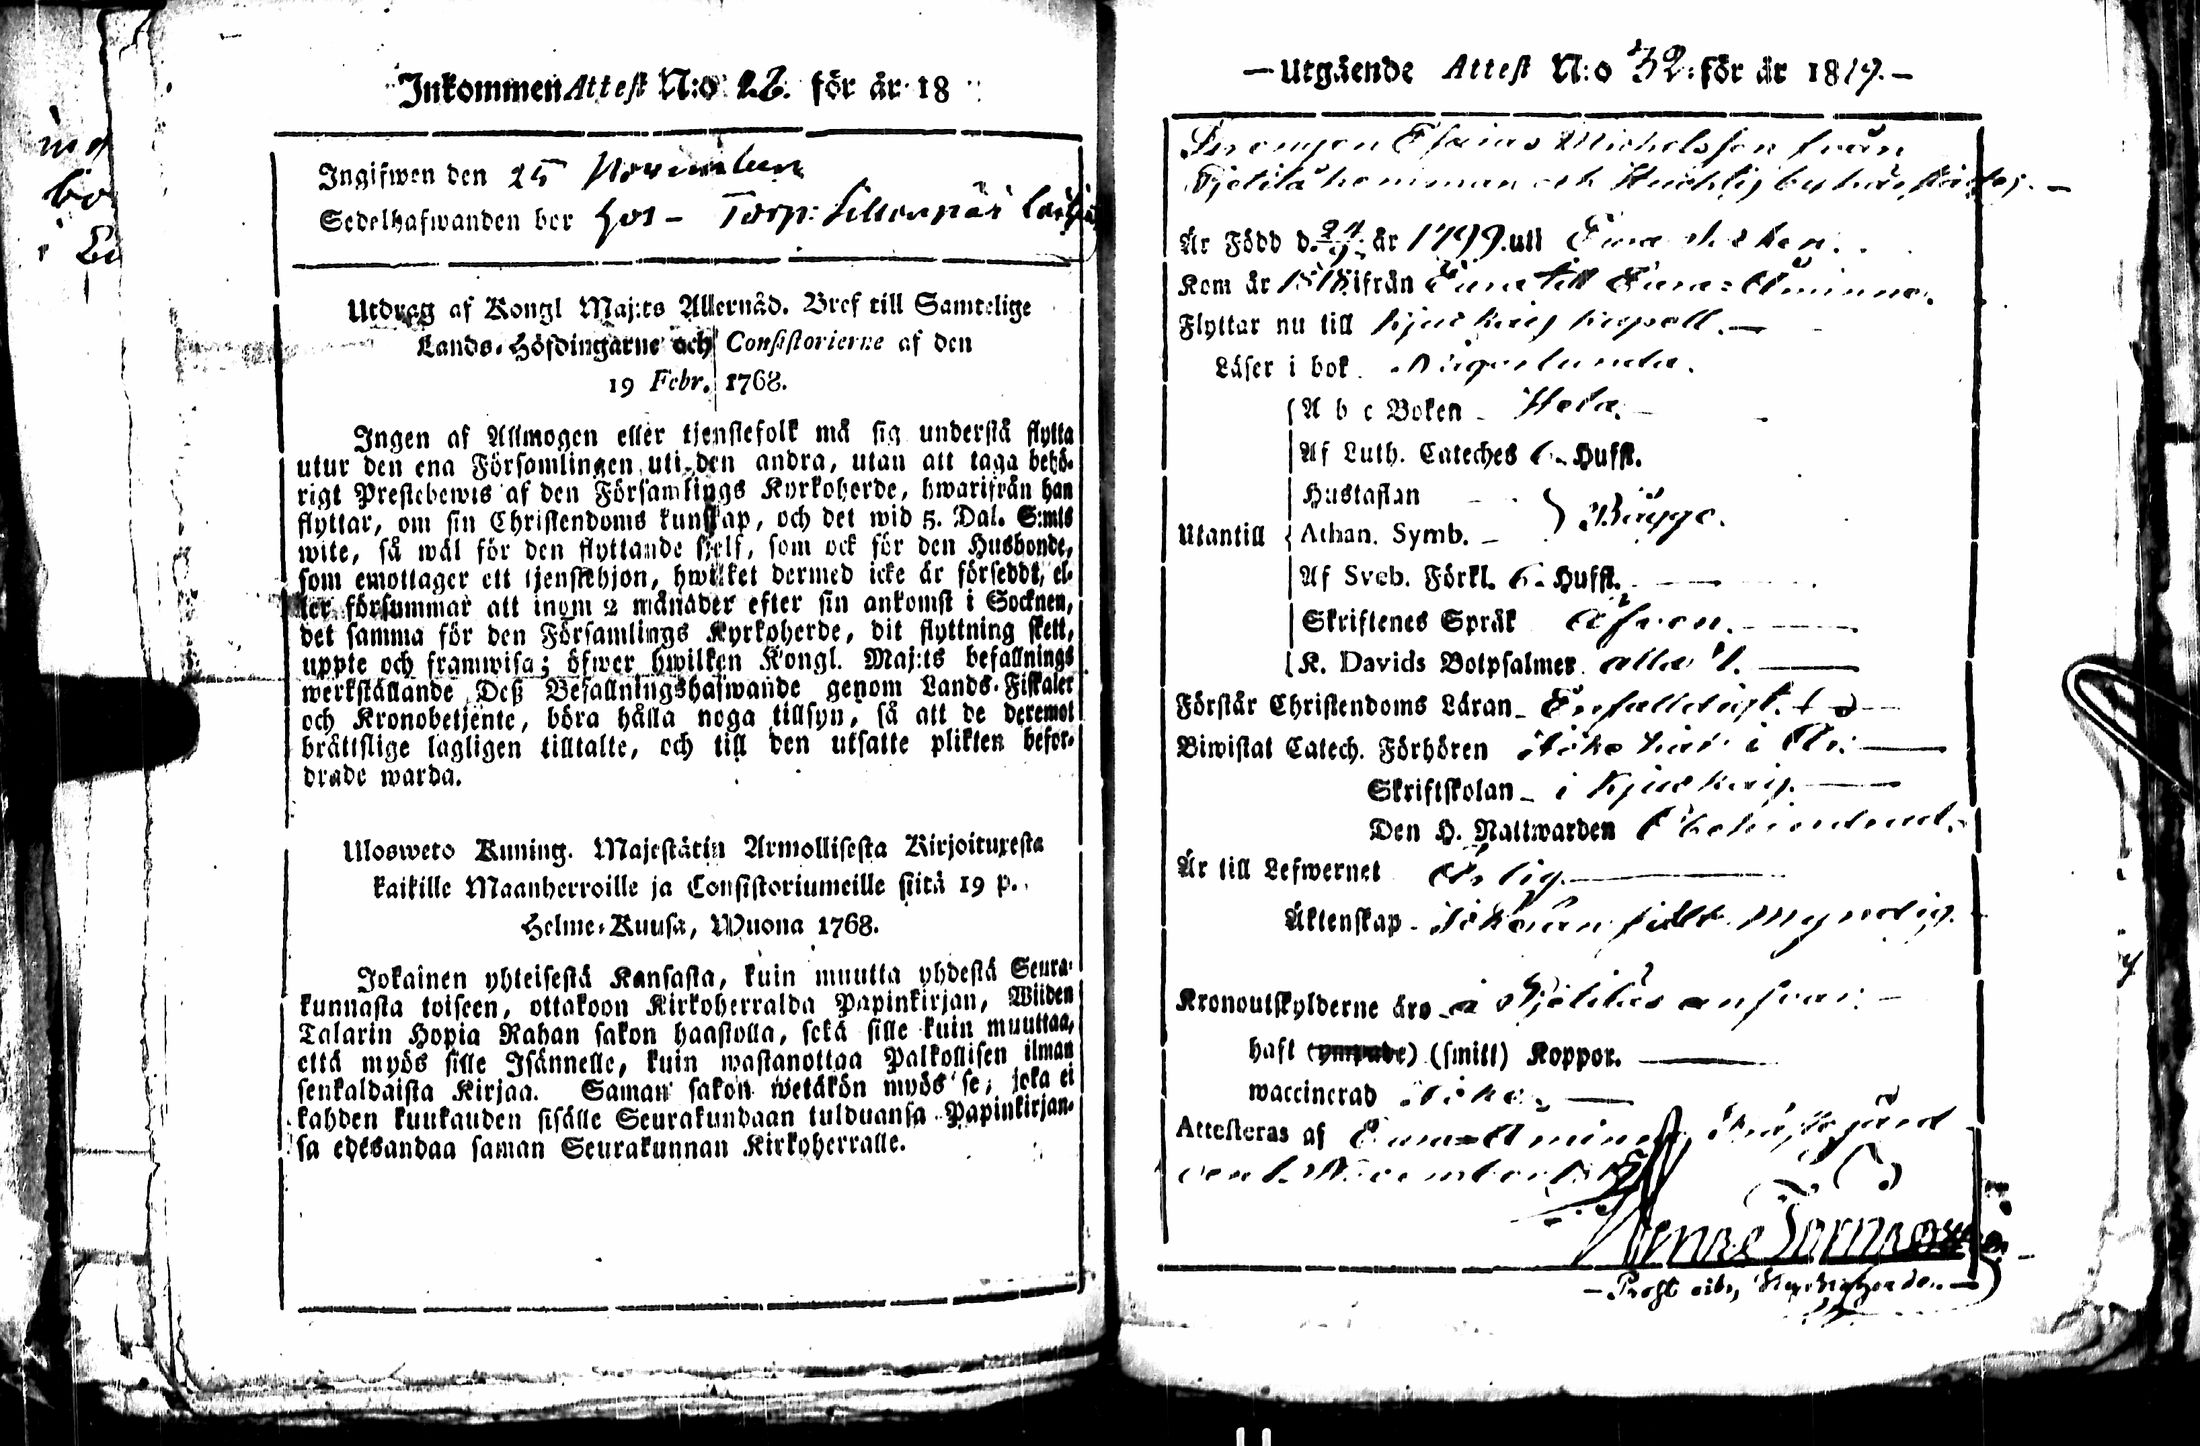 Inkommen Attest N:o 28. för år 18
Ingifwen den 25 November
Sedelhafwanden bor Hos Torp:
Utdrag af Kongl Maj:ts Allernåd. Bref till Samtelige
Lands-Höfdingarne och Consistorierne af den
19 Febr. 1768.
Ingen af Allmogen eller tjenstefolk må sig understå flytta
utur den ena Församlingen uti den andra, utan att taga behö-
rigt Prestebewis af den Församlings Kyrkoherde, hwarifrån han
flyttar, om sin Christendoms kunskap, och det wid 5. Dal. S:mts
wite, så wäl för den flyttande sjelf, som ock för den Husbonde,
som emottager ett tjenstehjon, hwilket dermed icke är försedt, el-
ler försummar att inom 2 månader efter sin ankomst i Socknen,
det samma för den Församlings Kyrkoherde, dit flyttning skett,
uppte och framwisa; öfwer hwilken Kongl. Maj:ts befallnings
werkställande Deß Befallningshafwande genom Lands-Fiskaler
och Kronobetjente, böra hålla noga tillsyn, så att de deremot
bråttslige lagligen tilltalte, och till den utsatte plikten befor-
drade warda.
Ulosweto Kuning. Majestätin Armollisesta Kirjoituxesta
kaikille Maanherroille ja Consistoriumeille siitä 19 p.
Helme-Kuusa, Wuona 1768.
Jokainen yhteisestä Kansasta, kuin muutta yhdestä Seura-
kunnasta toiseen, ottakoon Kirkoherralda Papinkirjan, Wiiden
Talarin Hopia Rahan sakon haastolla, sekä sille kuin muuttaa,
että myös sille Isännelle, kuin wastanottaa Palkollisen ilman
senkaldaista Kirjaa. Saman sakon wetäkön myös se, joka ei
kahden kuukauden sisälle Seurakundaan tulduansa Papinkirjan-
sa edesandaa saman Seurakunnan Kirkoherralle.
Utgående Attest N:o 32. för år 1819.
Drengen Esaias Michelsson från
Är Född d. 24/9 år 1799. uti Eura
Kom år 1818 ifrån Eura till Eura-Åminne.
Flyttar nu till Kjukais kapell.
Läser i bok
A b c Boken Hela.
Af Luth. Cateches 6. Hufst.
Hustaflan
Utantill Athan. Symb. } Bägge.
Af Sveb. Förkl. 6. Hufst.
Skriftenes Språk Äfven.
K. Davids Botpsalmer alla 7.
Förstår Christendoms Läran Enfalldigt.
Biwistat Catech. Förhören Icke här i År.
Skriftskolan i Kjukais.
Den H. Nattwarden Obehindrad.
Är till Lefwernet Ärlig.
Äktenskap
Kronoutskylderne äro å
haft (ympade) (smitt) Koppor.
waccinerad Icke.
Attesteras af Eura-Åminne Prästgård
den November 1819
Prost och Kyrkoherde.